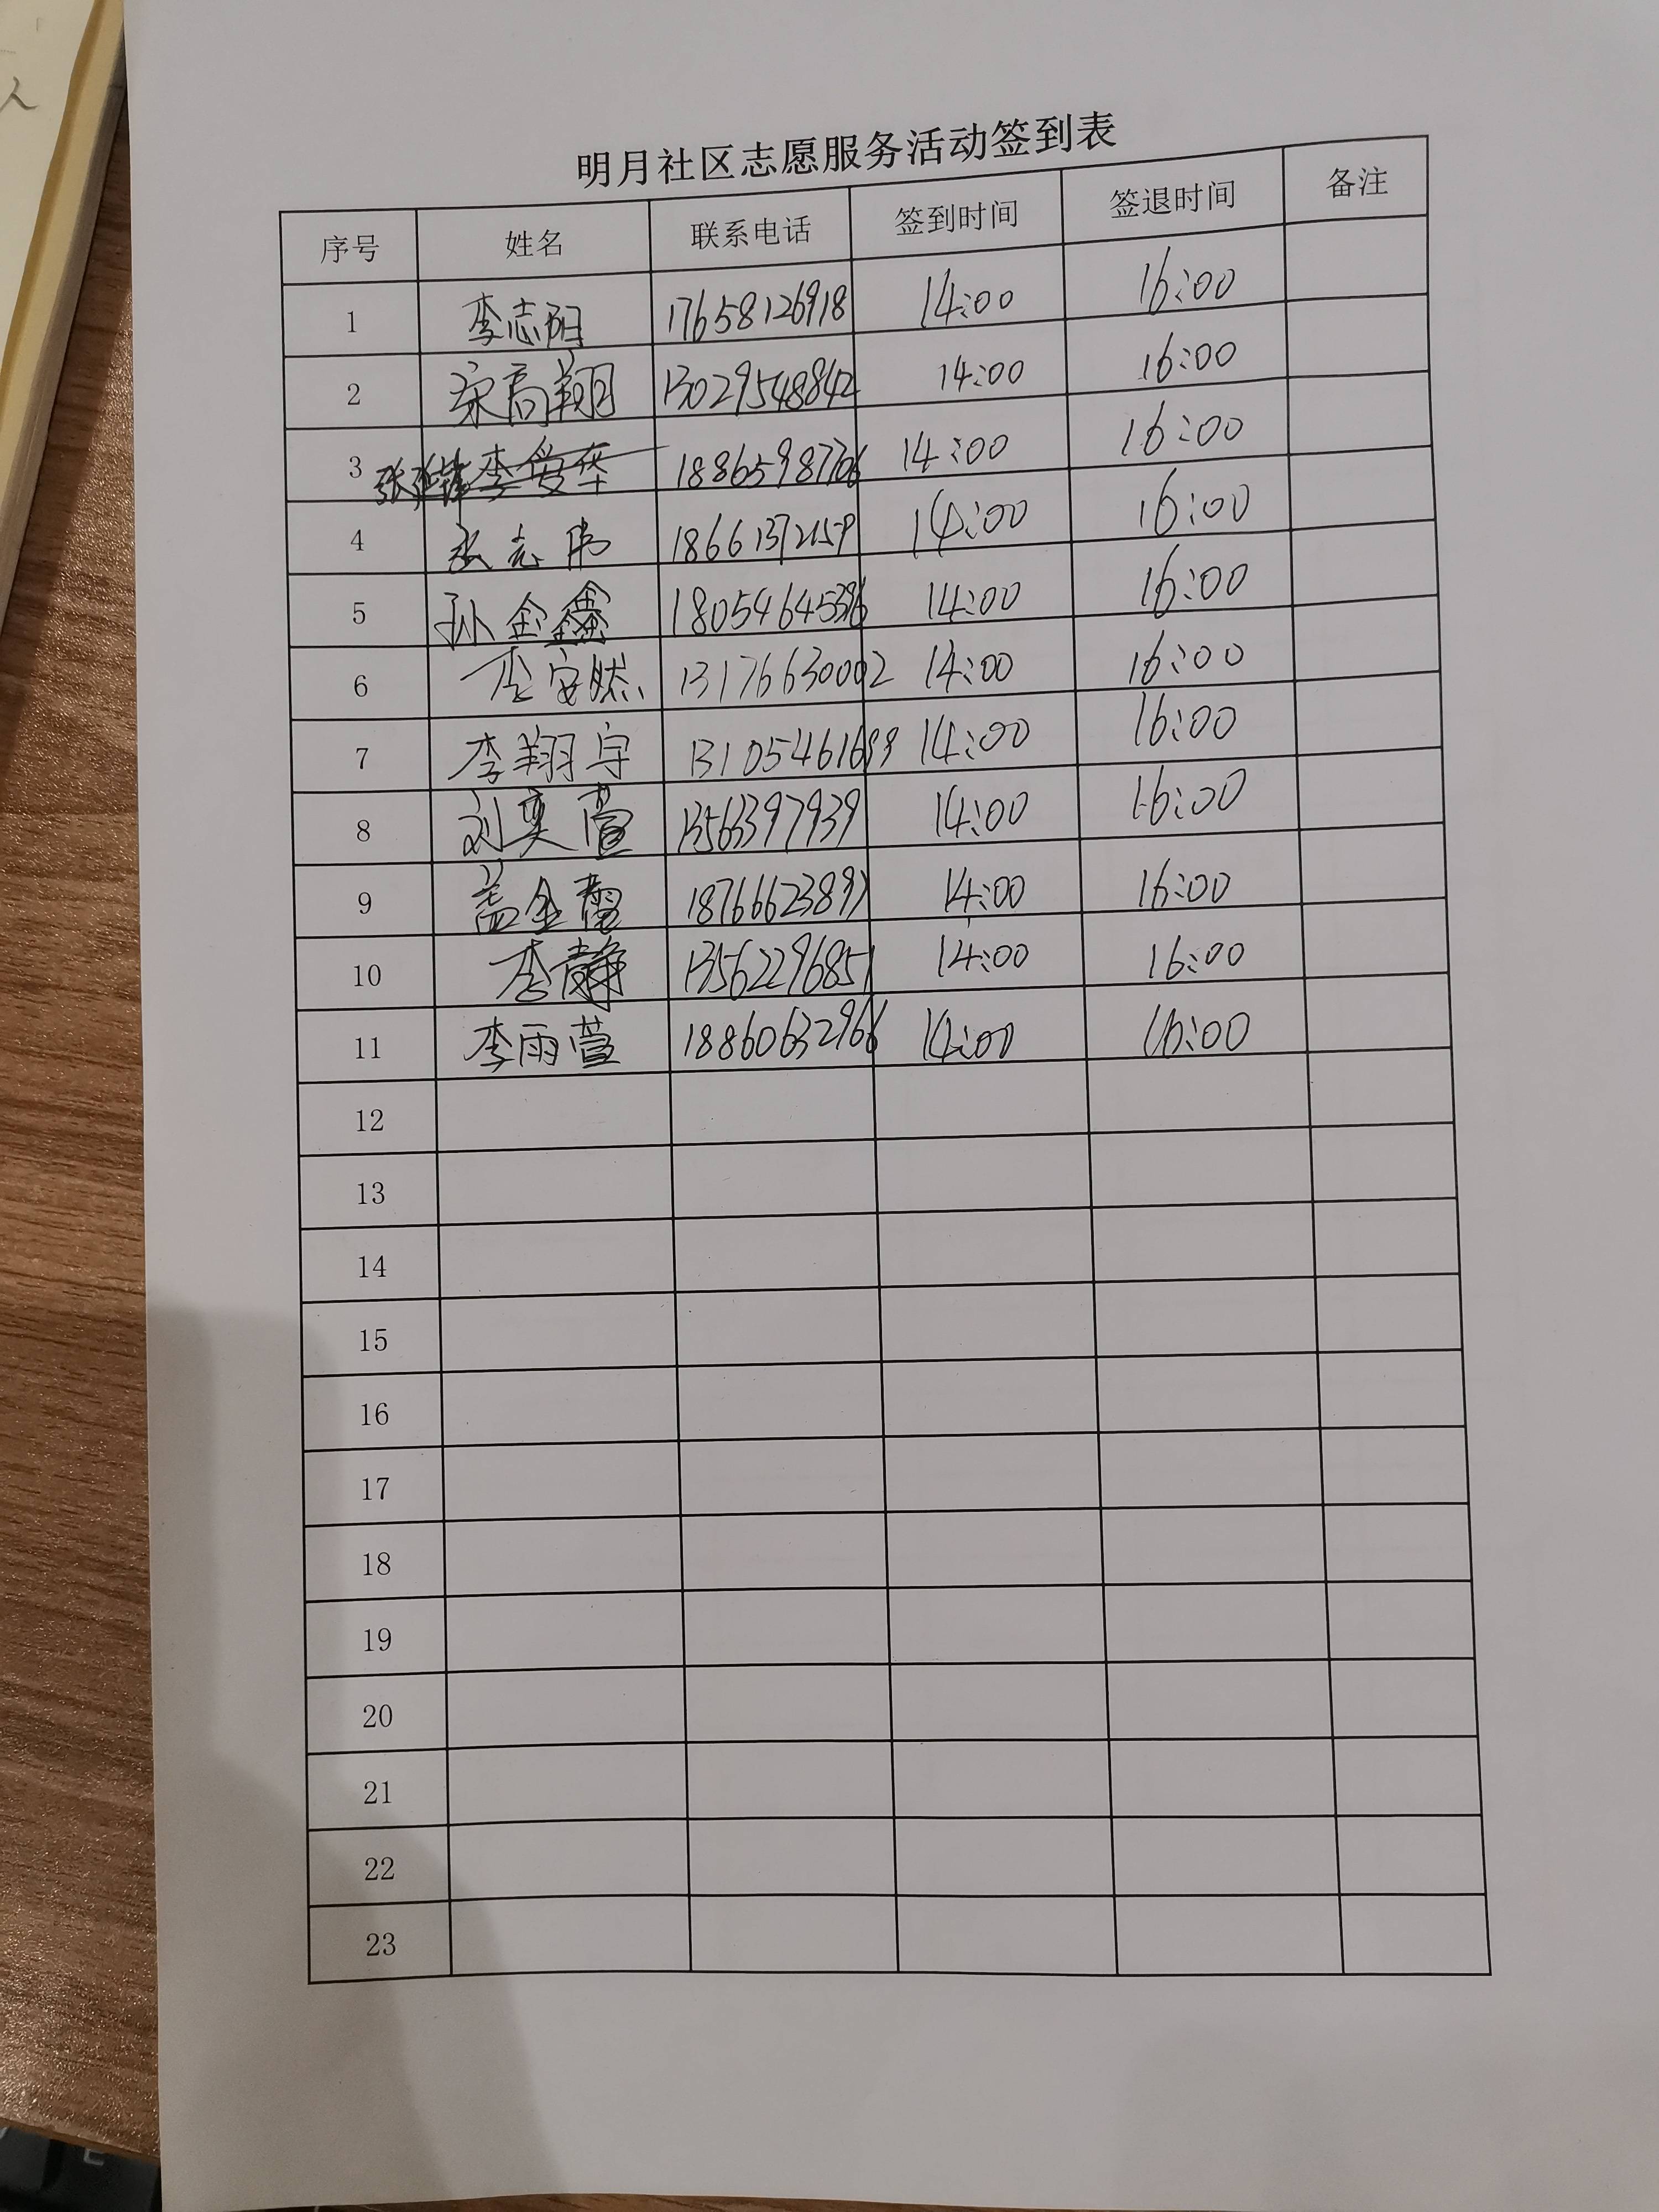 人
明月社区志愿服务活动签到表
序号 姓名 联系电话 签到时间 签退时间 备注
1 李志阳 17658126918 14:00 16:00
2 宋高翔 13029548842 14:00 16:00
3 李爱华 18865987706 14:00 16:00
4 张志伟 18661372159 14:00 16:00
5 孙金鑫 14:00 16:00
6 李安然 13176630002 14:00 16:00
7 李翔宇 13105461699 14:00 16:00
8 刘奕萱 13563397939 14:00 16:00
9 盖金蕾 14:00 16:00
10 李静 13562296851 14:00 16:00
11 李雨萱 18860632966 14:00 16:00
12
13
14
15
16
17
18
19
20
21
22
23